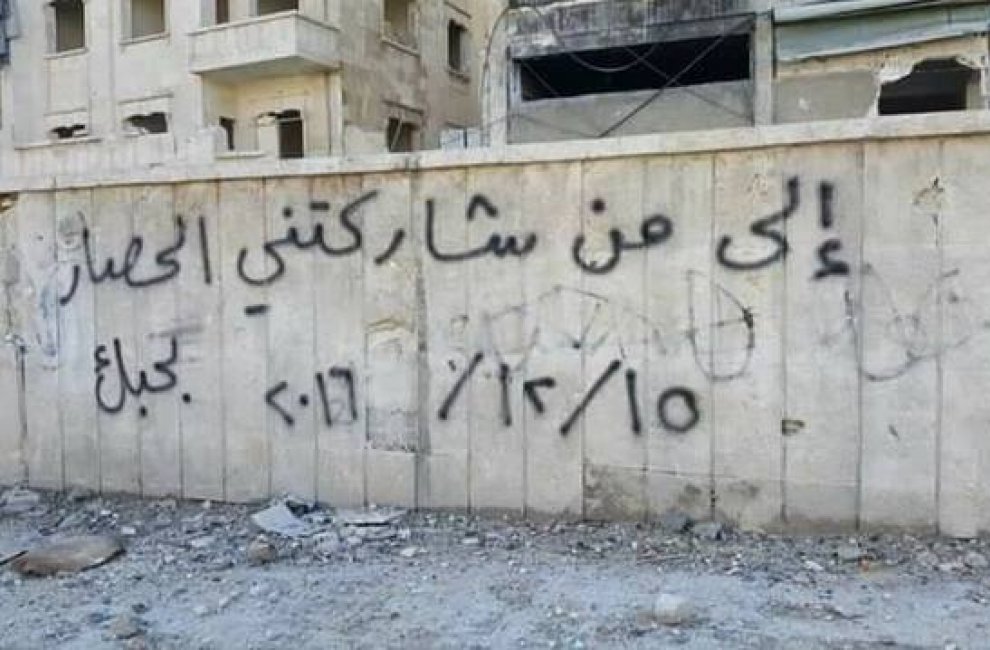 إلى من شاركتني الحصار
بحبك ١٥/١٢/٢٠١٦